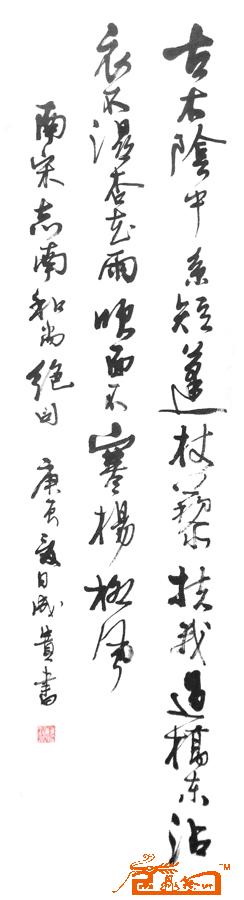 古木陰中系短蓬杖藜扶我過橋東沾
衣不濕杏花雨吹面不寒楊柳風
南宋志南和尚絕句 庚辰夏日成貴書
TM